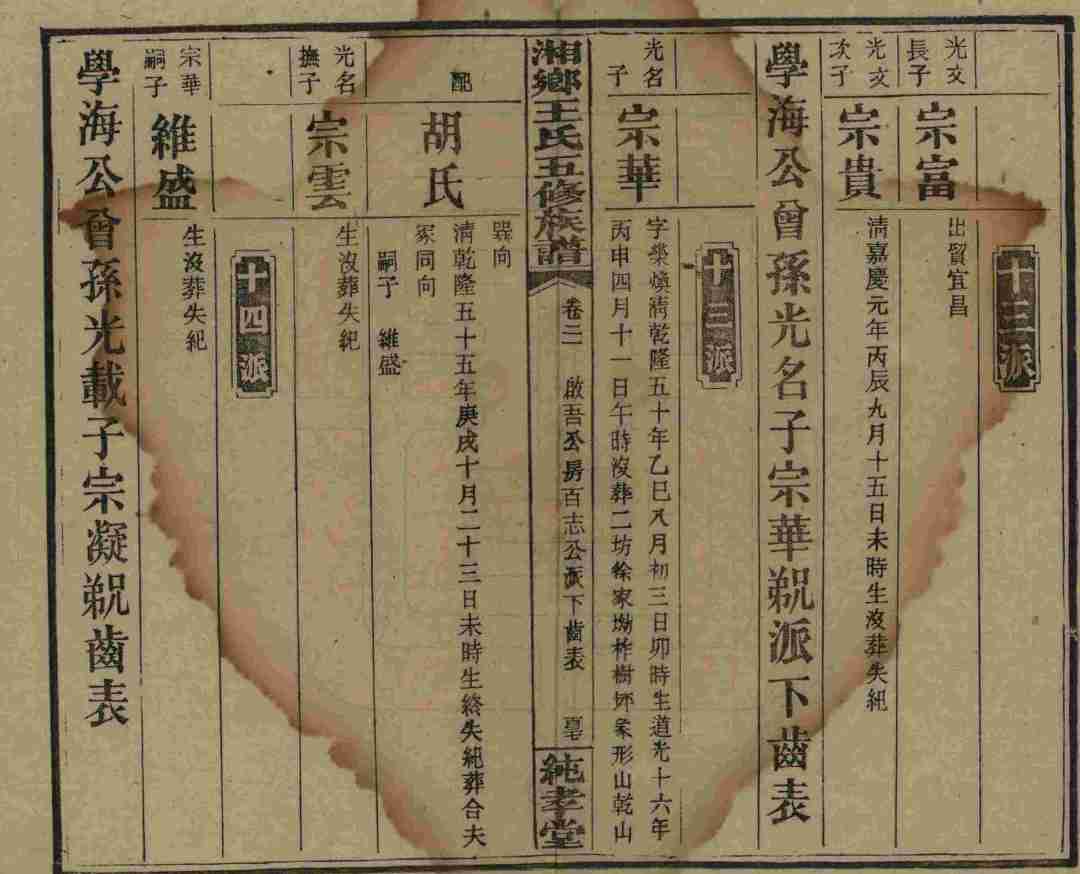 十三派
光文長子
宗富
出貿宜昌
光文次子
宗貴
清嘉慶元年丙辰九月十五日未時生沒葬失紀
學海公曾孫光名子宗華派下齒表
十三派
光名子
宗華
字 清乾隆五十年乙巳八月初三日卯時生道光十六年
丙申四月十一日午時沒葬二坊徐家坳柞樹坪象形山乾山
湘鄉王氏五修族譜
卷二
啟吾公房百志公派下齒表
純孝堂
巽向
配
胡氏
清乾隆五十五年庚戌十月二十三日未時生終失紀葬合夫
冢同向
嗣子 維盛
光名撫子
宗雲
生沒葬失紀
十四派
宗華嗣子
維盛
生沒葬失紀
學海公曾孫光載子宗凝 齒表